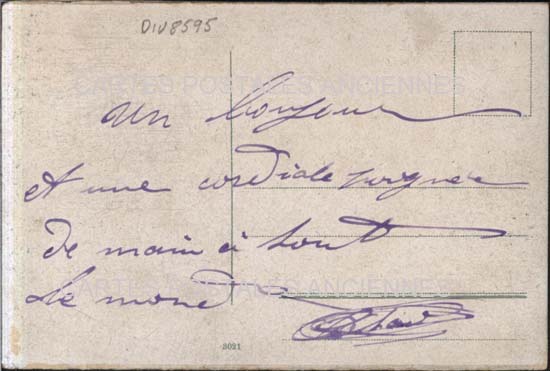 DIV8595
CARTES POSTALES ANCIENNES
un bonjour
et une cordiale poignée
de main à tout
le monde
CARTES POSTALES ANCIENNES
3021